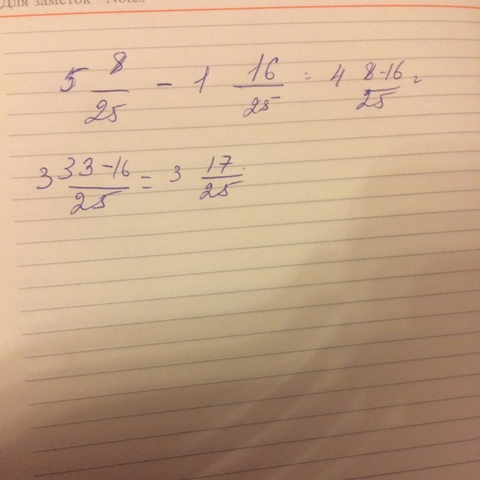 Для заметок Notes
5 8/25 - 1 16/25 = 4 8-16/25 =
3 33-16/25 = 3 17/25